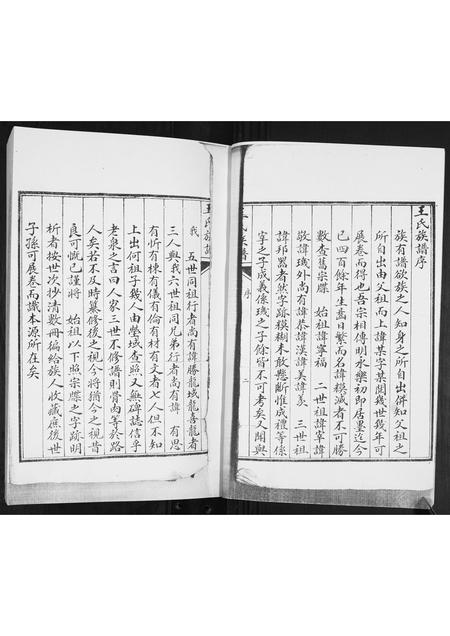 王氏族譜序
族有譜欲族之人知身之所自出併知父祖之
所自出由父祖而上諱某字某閱幾世幾年可
展卷而得也吾宗相傳明永樂初即居墨迄今
已四百餘年生齒日繁而名諱模減者不可勝
數查舊宗牒 始祖諱寧福 二世祖諱宰諱
敬諱琰外尚有諱恭諱漢諱美諱羨 三世祖
諱邦器者然字跡模糊未敢懸斷惟成禮等係
宰之子成義係琰之子餘皆不可考矣又聞與
序
我 五世同祖行者尚有諱勝龍城龍喜龍者
三人與我六世祖同兄弟行者尚有諱 有思
有忻有棟有儀有倫有材有文者七人但不知
上出何祖子幾人由塋域查照又無碑誌信乎
老泉之言曰人家三世不修譜則骨肉等於路
人矣若不及時纂修後之視今將猶今之視昔
良可慨已謹將 始祖以下照宗牒之字跡明
析者按世次抄清數冊徧給族人收藏庶後世
子孫可展卷而識本源所在矣
王氏族譜